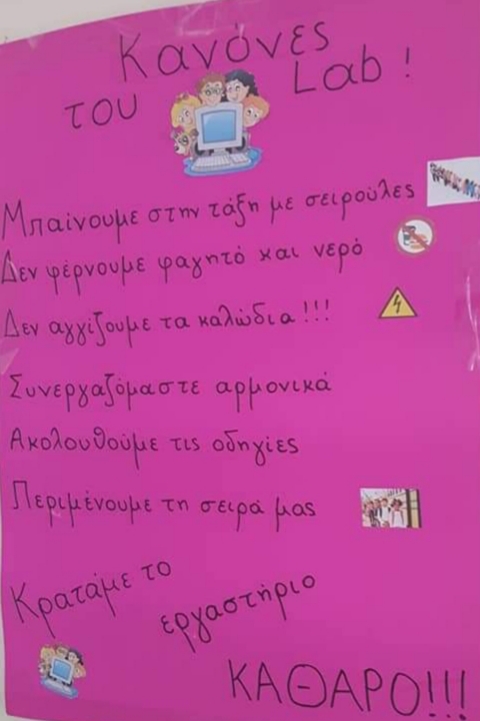 Κανόνες
του Lab!
Μπαίνουμε στην τάξη με σειρούλες
Δεν φέρνουμε φαγητό και νερό
Δεν αγγίζουμε τα καλώδια!!!
Συνεργαζόμαστε αρμονικά
Ακολουθούμε τις οδηγίες
Περιμένουμε τη σειρά μας
Κρατάμε το
εργαστήριο
ΚΑΘΑΡΟ!!!